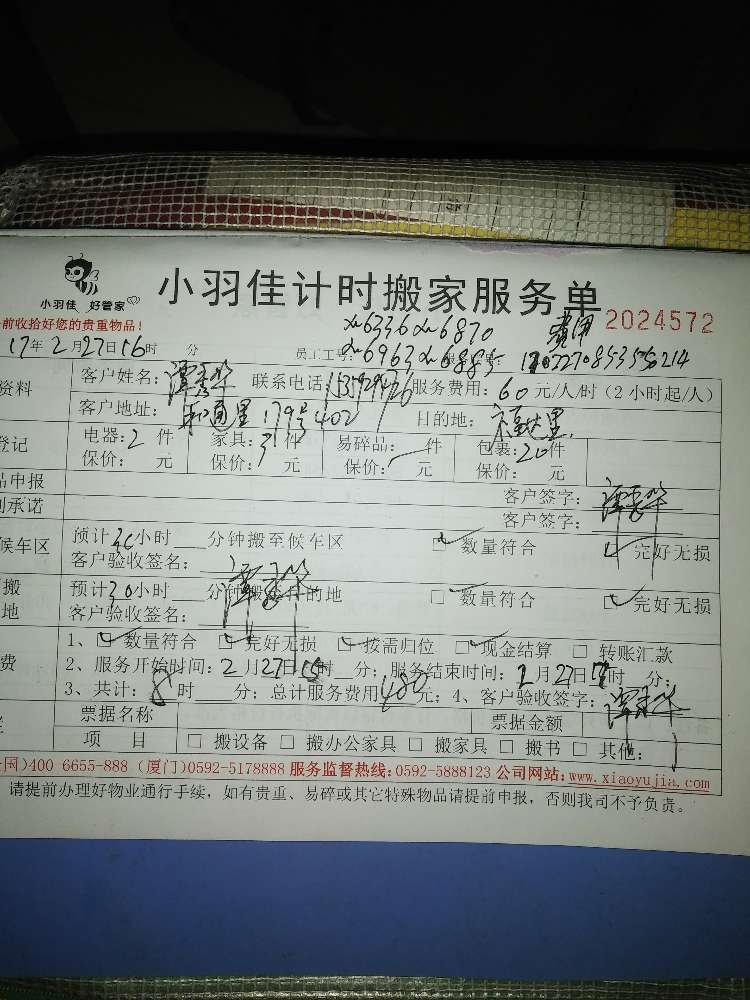 小羽佳 好管家
小羽佳计时搬家服务单
2024572
前收拾好您的贵重物品!
6336 6870
17年2月27日16时 分 员工工号: 6963 6885
资料 客户姓名: 联系电话: 服务费用: 60 元/人/时 (2小时起/人)
客户地址: 和通里179号402 目的地:
登记 电器: 2 件 家具: 3 件 易碎品: 件 包裹: 20 件
保价: 元 保价: 元 保价: 元 保价: 元
品申报 客户签字:
承诺 客户签字:
候车区 预计30小时 分钟搬至候车区 数量符合 完好无损
客户验收签名:
搬 预计30小时 分钟搬 目的地 数量符合 完好无损
地 客户验收签名:
1、 数量符合 完好无损 按需归位 现金结算 转账汇款
费 2、服务开始时间: 2月27日 时 分; 服务结束时间: 2月27日 时 分;
3、共计: 8时 分; 总计服务费用480元; 4、客户验收签字:
票据名称 票据金额
项 目 搬设备 搬办公家具 搬家具 搬书 其他:
国)400 6655-888 (厦门)0592-5178888 服务监督热线:0592-5888123 公司网站:www.xiaoyujia.com
请提前办理好物业通行手续,如有贵重、易碎或其它特殊物品请提前申报,否则我司不予负责。